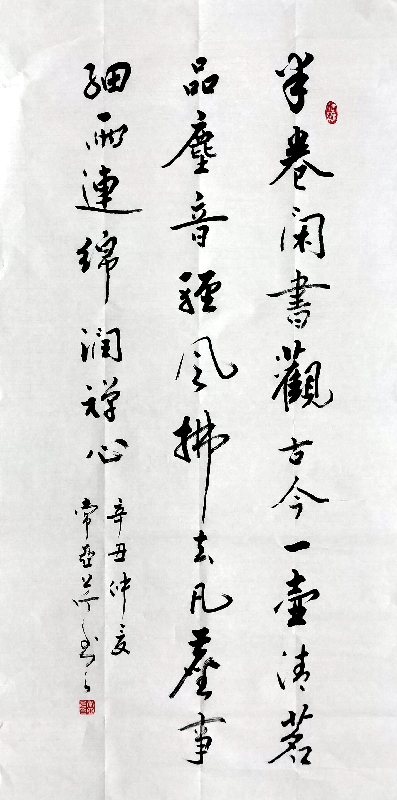 半卷闲書觀古今一壶清茗
品塵音輕風拂去凡塵事
细雨連绵润禅心
辛丑仲夏
常亚